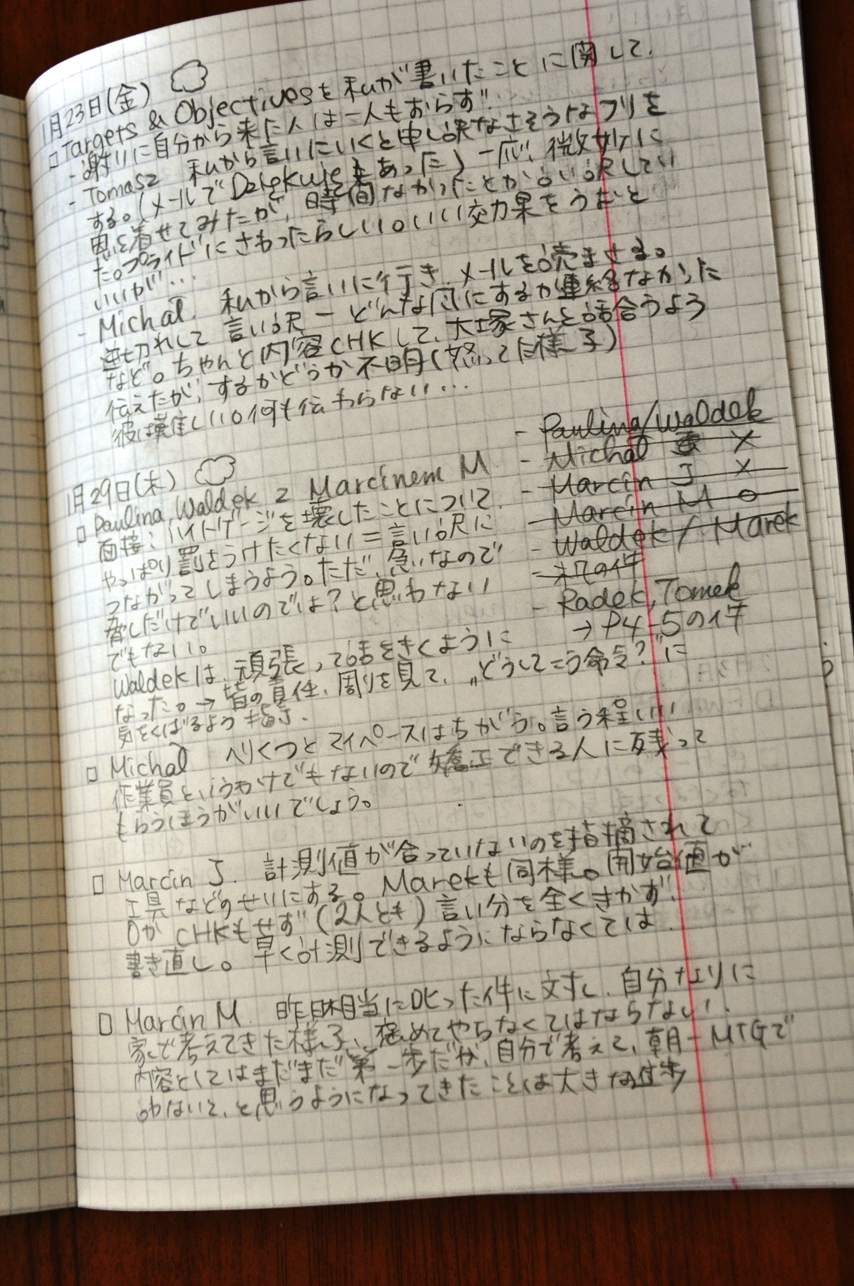 1月23日(金)
□ Targets & Objectivesを私が書いたことに関して、
- 謝りに自分から来た人は一人もおらず。
- Tomasz 私から言いにいくと申し訳なさそうなフリを
する。(メールでDziekujeもあった)一応、微妙に
恩を着せてみたが、時間なかったとか言い訳してい
た。プライドにさわったらしい。いい効果をうむと
いいが…
- Michal. 私から言いに行き、メールを読まさる。
逆切れして言い訳－どんな風にするか連絡なかった
など。ちゃんと内容CHKして、大塚さんと話合うよう
伝えたが、するかどうか不明(怒ってた様子)
彼は難しい。何も伝わらない…
1月29日(木)
□ Paulina, Waldek z Marcinem M
面接:ハイトゲージを壊したことについて、
やっぱり罰をうけたくない=言い訳に
つながってしまうよう。ただ、急いなので
脅しだけでいいのでは?と思わない
でもない。
Waldekは、頑張って話をきくように
なった。→皆の責任、周りを見て、„どうしてこう命令?"に
気をくばるよう指示.
- Paulina/Waldek
- Michal X
- Marcin J X
- Marcin M o
- Waldek / Marek
- 机の件
- Radek, Tomek
→ P4-5の件
□ Michal へりくつとマイペースはちがう。言う程いい
作業員というわけでもないので矯正できる人に残って
もらうほうがいいでしょう。
□ Marcin J. 計測値が合っていないのを指摘されて
工具などのせいにする。Marekも同様。開始値が
0か CHKもせず(2人とも)言い分を全くきかず、
書き直し。早く計測できるようにならなくては.
□ Marcin M. 昨日相当に叱った件に対し、自分なりに
家で考えてきた様子、褒めてやらなくてはならない.
内容としてはまだまだ第一歩だが、自分で考えて、朝一MTGで
と思うようになってきたことは大きな進歩